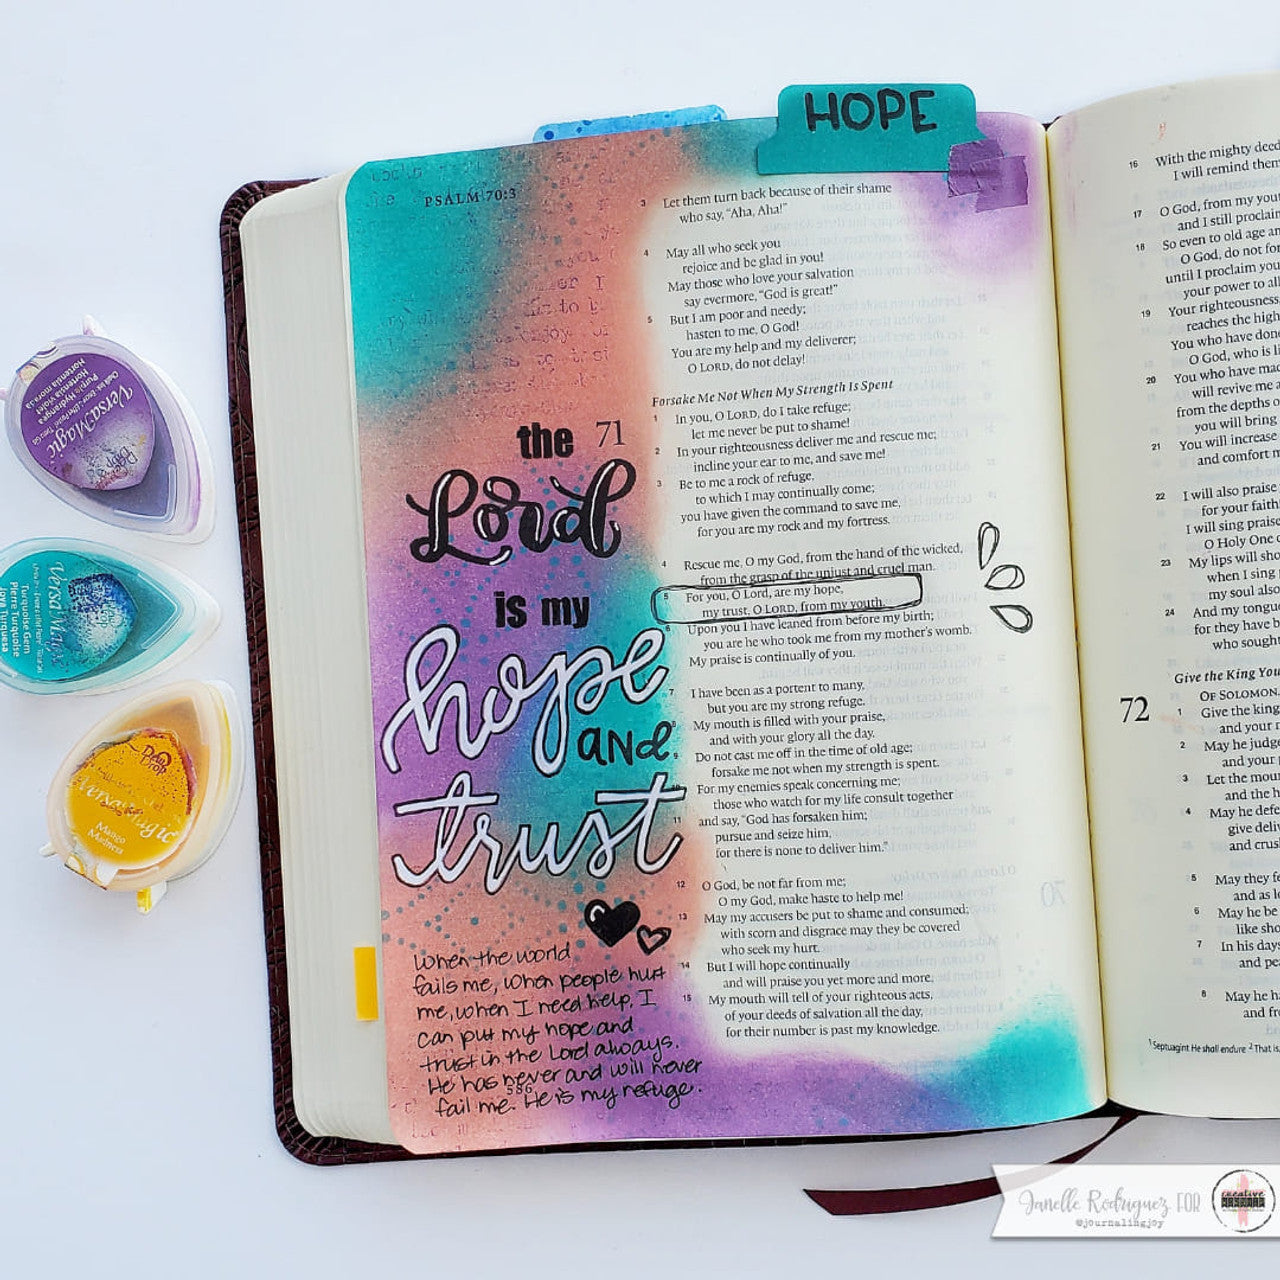 HOPE
PSALM 70:3
3 Let them turn back because of their shame
who say, "Aha, Aha!"
4 May all who seek you
rejoice and be glad in you!
May those who love your salvation
say evermore, "God is great!"
5 But I am poor and needy;
hasten to me, O God!
You are my help and my deliverer;
O LORD, do not delay!
Forsake Me Not When My Strength Is Spent
71
1 In you, O LORD, do I take refuge;
let me never be put to shame!
2 In your righteousness deliver me and rescue me;
incline your ear to me, and save me!
3 Be to me a rock of refuge,
to which I may continually come;
you have given the command to save me,
for you are my rock and my fortress.
4 Rescue me, O my God, from the hand of the wicked,
from the grasp of the unjust and cruel man.
5 For you, O Lord, are my hope,
my trust, O LORD, from my youth.
6 Upon you I have leaned from before my birth;
you are he who took me from my mother's womb.
My praise is continually of you.
7 I have been as a portent to many,
but you are my strong refuge.
8 My mouth is filled with your praise,
and with your glory all the day.
Do not cast me off in the time of old age;
forsake me not when my strength is spent.
10 For my enemies speak concerning me;
those who watch for my life consult together
11 and say, "God has forsaken him;
pursue and seize him,
for there is none to deliver him."
12 O God, be not far from me;
O my God, make haste to help me!
13 May my accusers be put to shame and consumed;
with scorn and disgrace may they be covered
who seek my hurt.
14 But I will hope continually
and will praise you yet more and more.
15 My mouth will tell of your righteous acts,
of your deeds of salvation all the day,
for their number is past my knowledge.
the
Lord
is my
hope
and
trust
When the world
fails me, when people hurt
me, when I need help, I
can put my hope and
trust in the Lord always.
He has never and will never
fail me. He is my refuge.
586
16 With the mighty deed
I will remind them
17 O God, from my you
and I still proclai
18 So even to old age an
O God, do not for
until I proclaim you
your power to all
19 Your righteousness
reaches the high
You who have done
O God, who is li
20 You who have mad
will revive me a
from the depths o
you will bring
21 You will increase
and comfort m
22 I will also praise
for your faith
I will sing praise
O Holy One o
23 My lips will sho
when I sing
my soul also
24 And my tongu
for they have b
who sough
Give the King You
OF SOLOMON.
72
1 Give the king
and your r
2 May he judg
and your p
3 Let the mou
and the h
4 May he defe
give deli
and crus
5 May they fe
and as l
6 May he be
like sho
7 In his days
and pea
8 May he ha
and fro
1 Septuagint He shall endure 2 That is,
VersaMagic
Purple Hydrangea
VersaMagic
Turquoise Gem
Dew Drop
VersaMagic
Mango
Madness
Janelle Rodriguez FOR
@journalingjoy
creative